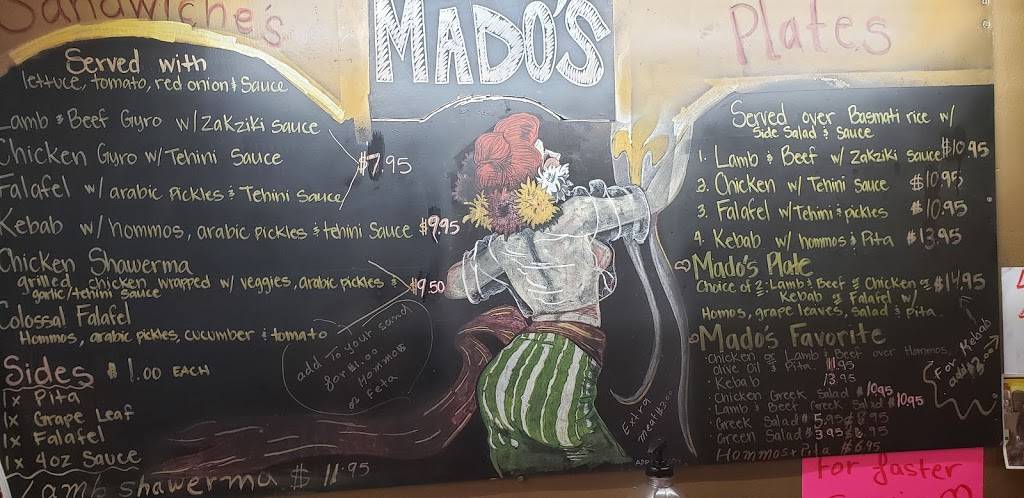 Sandwiche's
Served with
lettuce, tomato, red onion & Sauce
Lamb & Beef Gyro w/Zakziki sauce
Chicken Gyro w/Tehini Sauce
$7.95
Falafel w/ arabic Pickles & Tehini Sauce
Kebab w/ hommos, arabic pickles & tehini Sauce $9.95
Chicken Shawerma
grilled chicken wrapped w/ veggies, arabic pickles &
garlic/tehini sauce
$9.50
Colossal Falafel
Hommos, arabic pickles, cucumber & tomato
add To your sand
for $1.00
Hommos
or Feta
Sides $1.00 EACH
1x Pita
1x Grape Leaf
1x Falafel
1x 4oz Sauce
Lamb shawerma $11.95
MADO'S
Extra
meat $3.00
Plates
Served over Basmati rice w/
Side Salad & Sauce
1. Lamb & Beef w/ Zakziki sauce $10.95
2. Chicken w/ Tehini Sauce $10.95
3. Falafel w/Tehini & pickles $10.95
4. Kebab w/ hommos & Pita $13.95
Mado's Plate
Choice of 2: Lamb & Beef or Chicken or $14.95
Kebab or Falafel w/
Homos, grape leaves, salad & Pita.
For Kebab
add $2.00
Mado's Favorite
Chicken or Lamb & Beef over Hommos,
olive oil & Pita. 11.95
Kebab 13.95
Chicken Greek Salad 10.95
Lamb & Beef Greek Salad $10.95
Greek Salad $5.95 & 8.95
Green Salad $3.95 & 6.95
Hommos + Pita $6.95
For faster